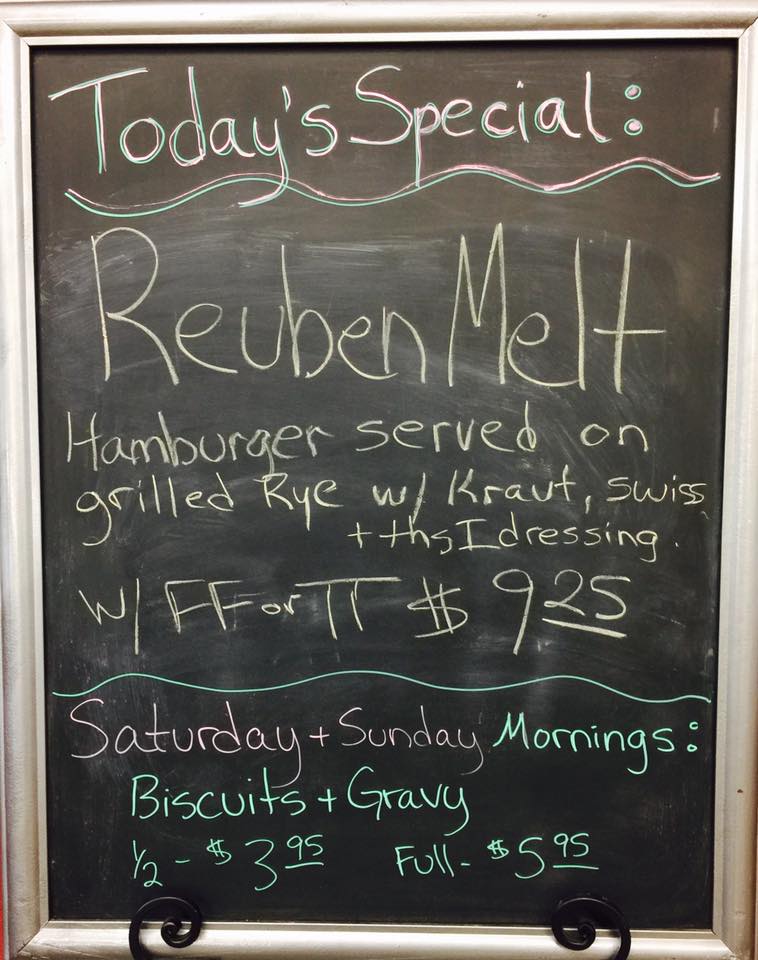 Today's Special:
Reuben Melt
Hamburger served on
grilled Rye w/ Kraut, swiss
+ thsI dressing.
w/ FF or TT $ 9 25
Saturday + Sunday Mornings:
Biscuits + Gravy
1/2 - $ 3 95 Full - $ 5 95